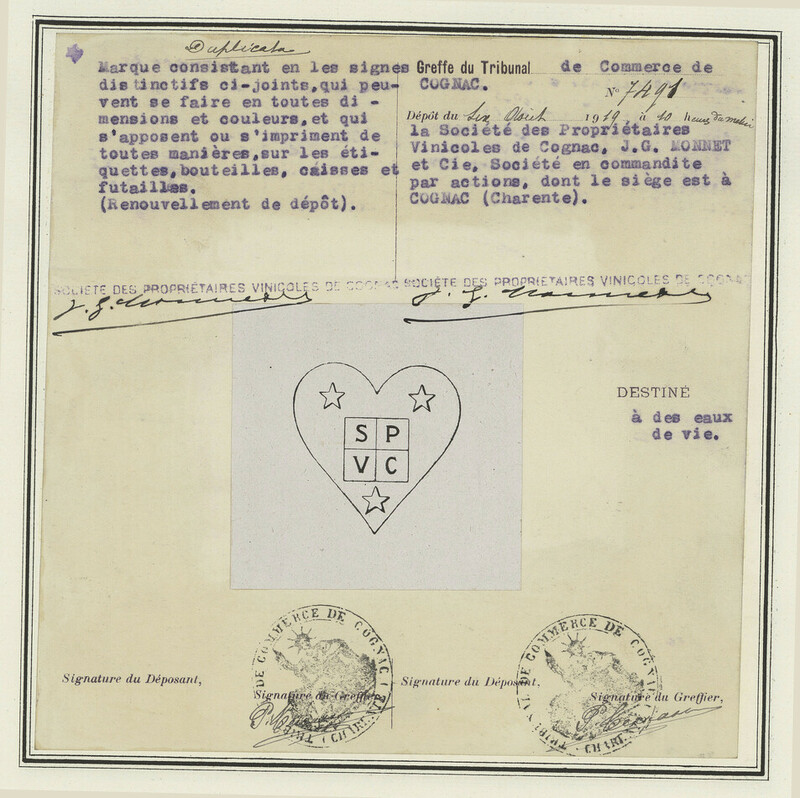 Duplicata
Marque consistant en les signes
distinctifs ci-joints, qui peu-
vent se faire en toutes di -
mensions et couleurs, et qui
s'apposent ou s'impriment de
toutes manières, sur les éti-
quettes, bouteilles, caisses et
futailles.
(Renouvellement de dépôt).
Greffe du Tribunal de Commerce de
COGNAC.
N° 7491
Dépôt du Six Août 1919 à 10 heures du matin
la Société des Propriétaires
Vinicoles de Cognac, J.G. MONNET
et Cie, Société en commandite
par actions, dont le siège est à
COGNAC (Charente).
SOCIÉTÉ DES PROPRIÉTAIRES VINICOLES DE COGNAC
J. G. Monnet
SOCIÉTÉ DES PROPRIÉTAIRES VINICOLES DE COGNAC
J. G. Monnet
S P
V C
DESTINÉ
à des eaux
de vie.
Signature du Déposant,
Signature du Greffier,
TRIBUNAL DE COMMERCE DE COGNAC (CHARENTE)
Signature du Déposant,
Signature du Greffier,
TRIBUNAL DE COMMERCE DE COGNAC (CHARENTE)